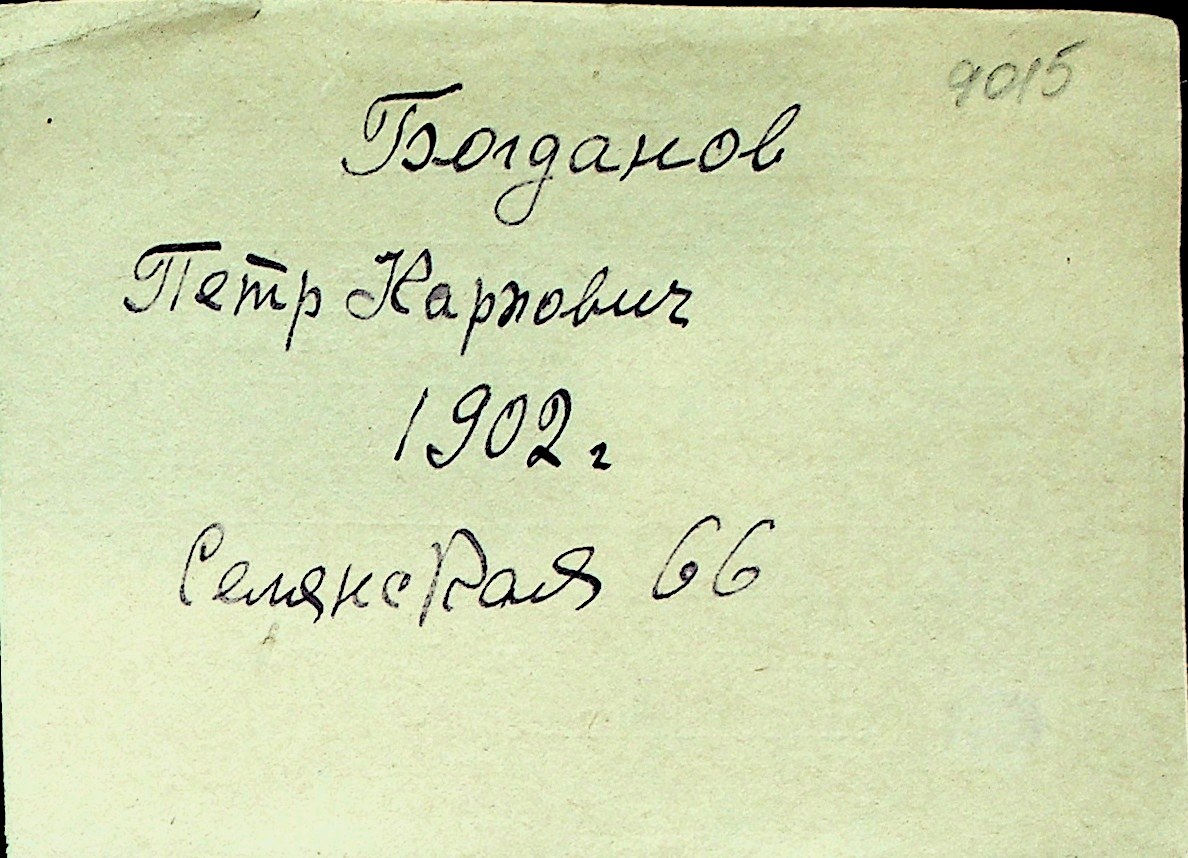 9015
Богданов
Петр Карпович
1902 г
Селянская 66